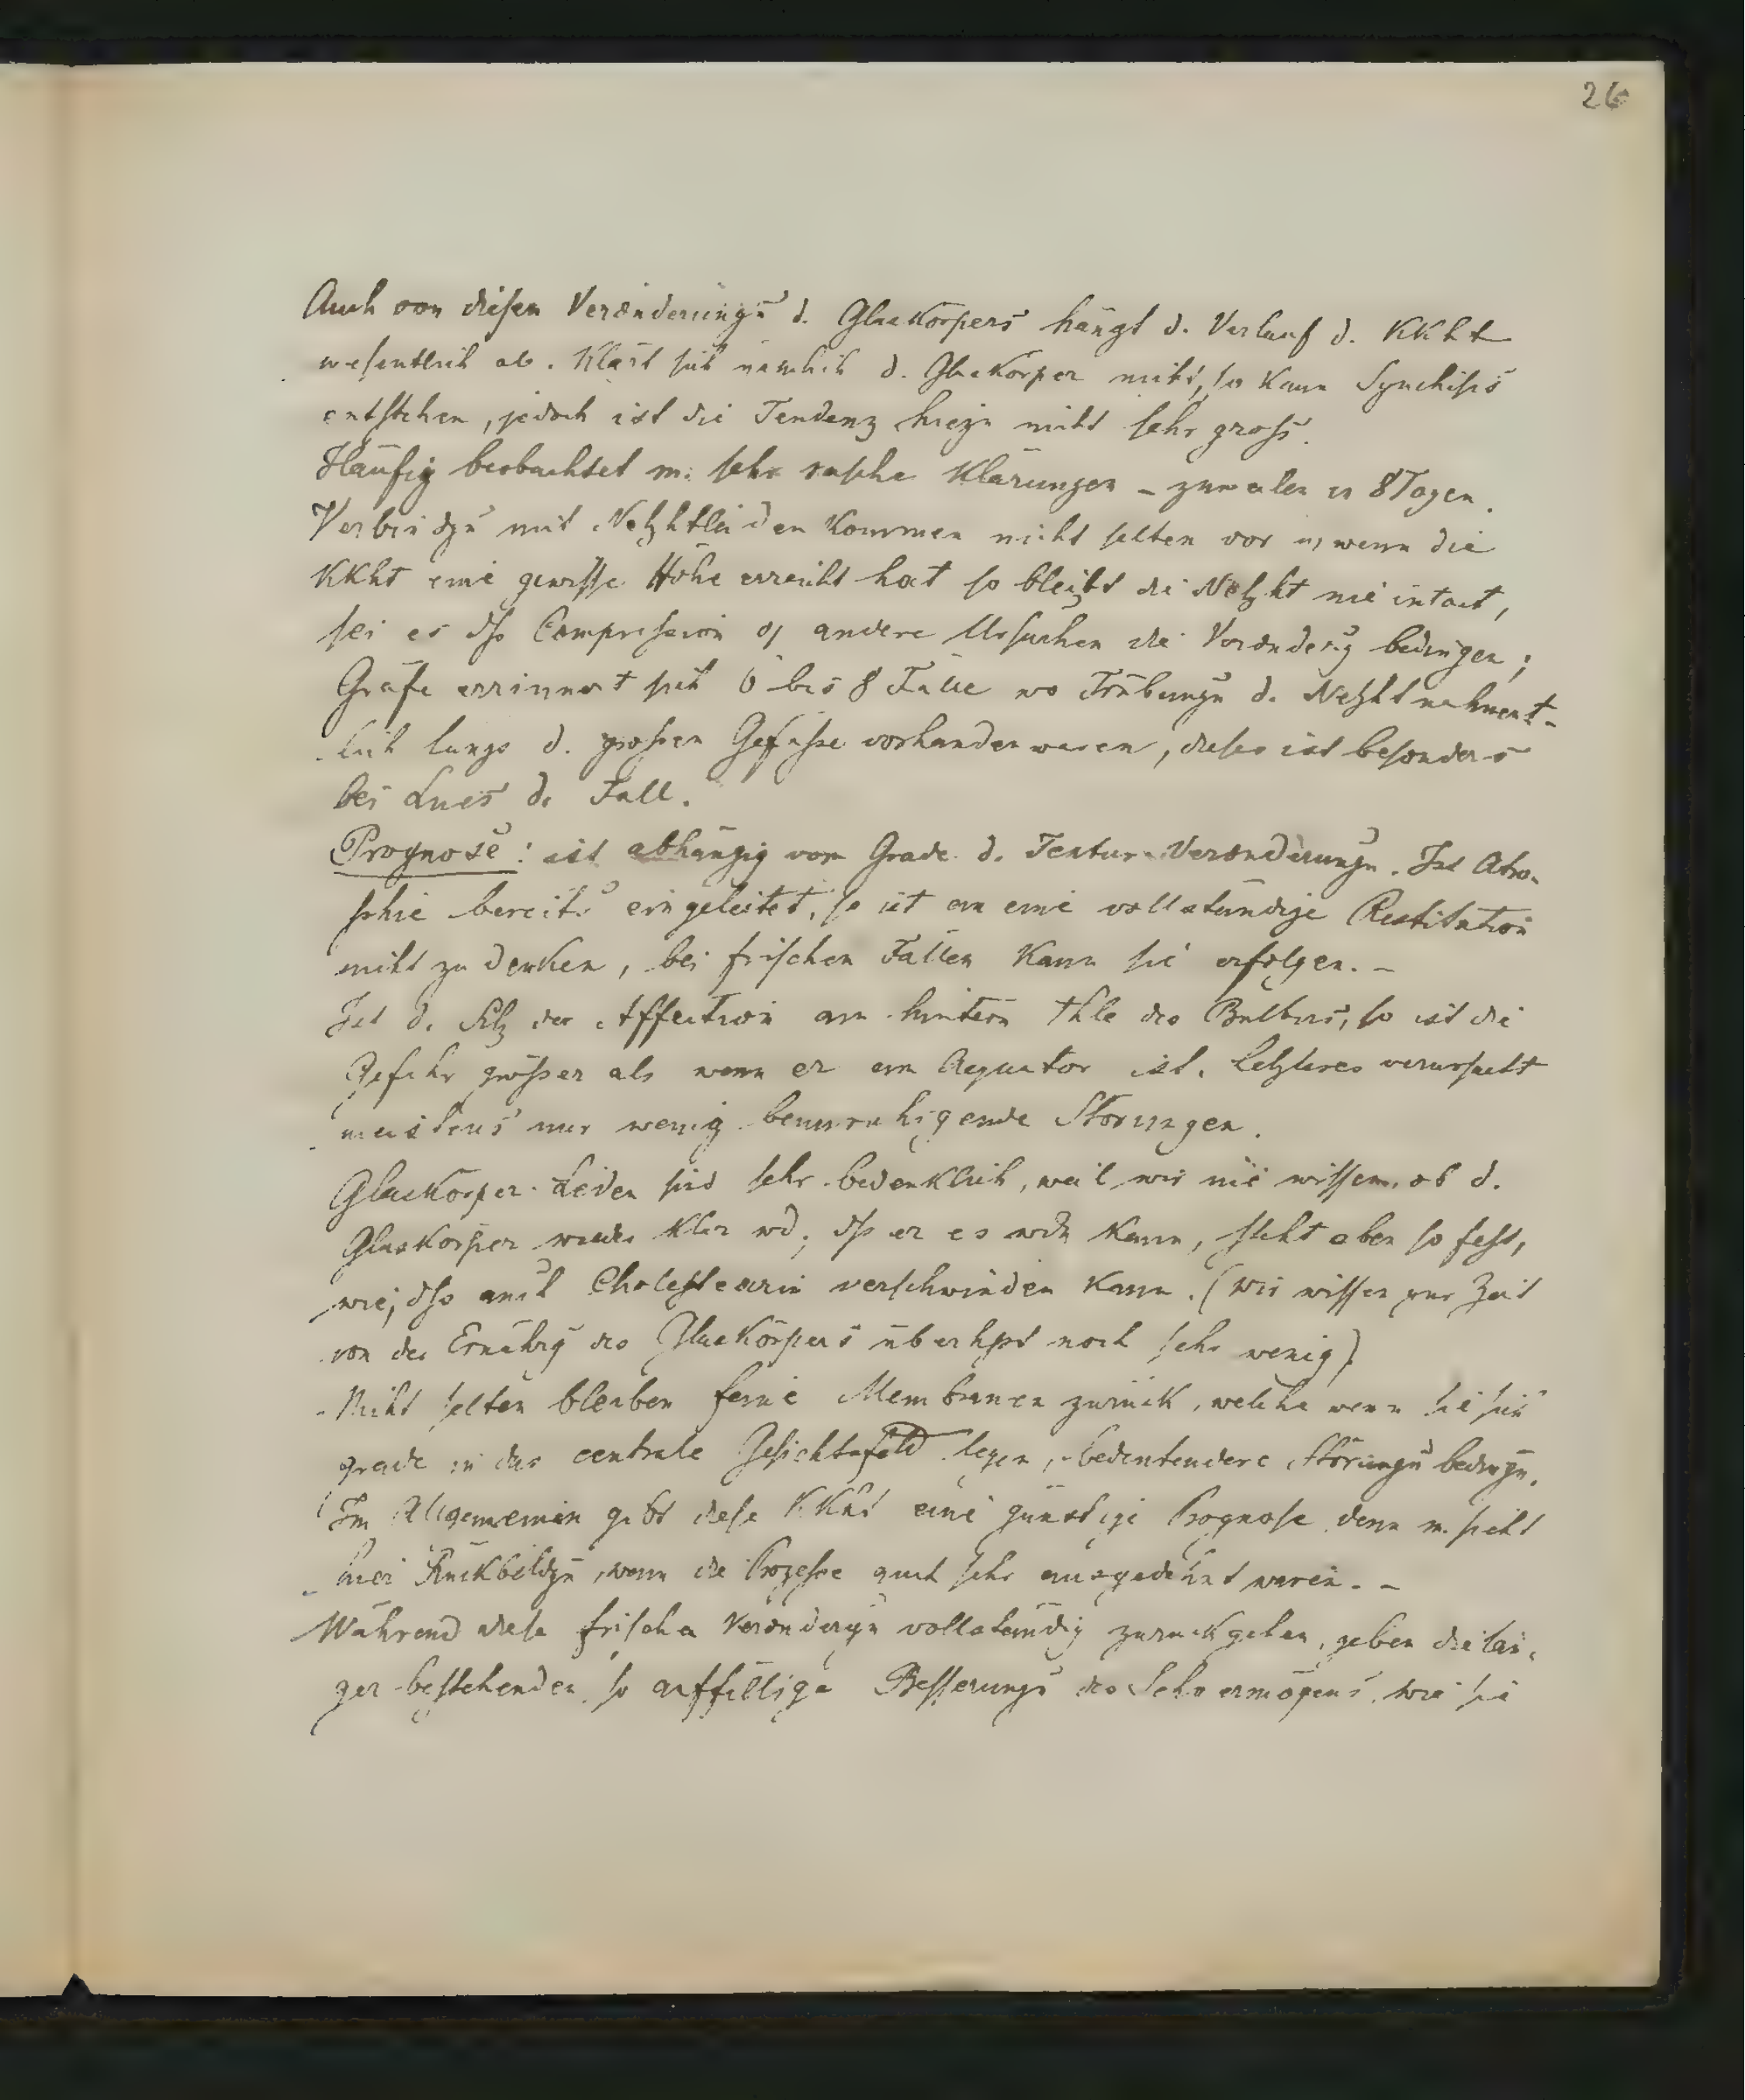 26
Auch von diesen Veränderungn d. Glaskörpers hängt d. Verlauf d. KKht
wesentlich ab. Klärt sich nämlich d. Glaskörper nicht, so kann Synchisis
entstehen, jedoch ist die Tendenz hiezu nicht sehr gross.
Häufig beobachtet m. sehr rasche Klärungen – zuweilen in 8 Tagen.
Verbindgn mit Netzhtleiden kommen nicht selten vor u, wenn die
KKht eine gewisse Höhe erreicht hat so bleibt die Netzht nie intact,
sei es dss Compression od andere Ursachen die Veränderg bedingen;
Gräfe errinnert sich 6 bis 8 Fälle wo Trübungn d. Netzht nahment-
lich längs d. grossen Gefässe vorhanden waren, dieses ist besonders
bei Lues d. Fall.
Prognose: ist abhängig vom Grade d. Textur-Veränderungn. Ist Atro-
phie bereits eingeleitet, so ist an eine vollständige Restitution
nicht zu denken, bei frischen Fällen kann sie erfolgen. –
Ist d. Sitz der Affection am hintern Thle des Bulbus, so ist die
Gefahr grösser als wenn er am Aequator ist. Letzteres verursacht
meistens nur wenig beunruhigende Störungen.
Glaskörper-Leiden sind sehr bedenklich, weil wir nie wissen, ob d.
Glaskörper wieder klar wd; dss er es wdn kann, steht eben so fest,
wie, dss auch Cholestearin verschwinden kann. (Wir wissen zur Zeit
von der Ernährg des Glaskörpers überhpt noch sehr wenig)
Nicht selten bleiben feine Membranen zurück, welche wenn sie sich
grade in das centrale Gesichtsfeld legen, bedeutendere Störungn bedingn.
Im Allgemeinen gibt diese KKht eine günstige Prognose denn m. sieht
hier Rückbildgn, wenn die Prozesse auch sehr ausgedehnt waren. –
Während diese frischen Verändergn vollständig zurückgehen, geben die län-
ger bestehenden so auffällige Besserungn des Sehvermögens wie sie